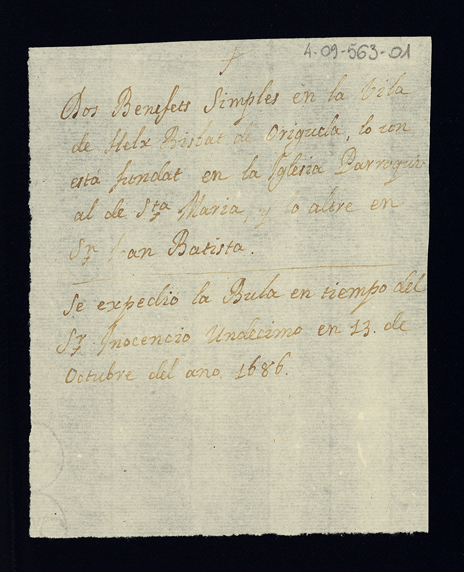 4-09-563-01
Dos Benefets Simples en la Vila
de Helx Bisbat de Origuela, lo von
está fundat en la Iglesia Parroqui
al de Sta Maria, y lo altre en
Sn Joan Batista.
Se expedió la Bula en tiempo del
Sr. Inocencio Undecimo en 13. de
Octubre del ano 1686.